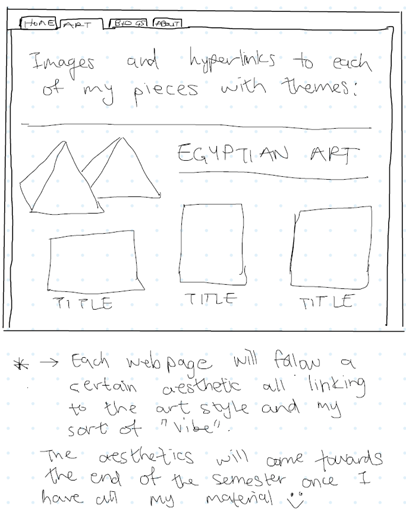 HOME ART BLOGS ABOUT
Images and hyperlinks to each
of my pieces with themes:
EGYPTIAN ART
TITLE TITLE TITLE
* → Each webpage will follow a
certain aesthetic all linking
to the art style and my
sort of "vibe".
The aesthetics will come towards
the end of the semester once I
have all my material :)